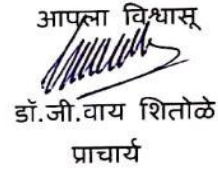 आपला विश्वासू
डॉ.जी.वाय शितोळे
प्राचार्य